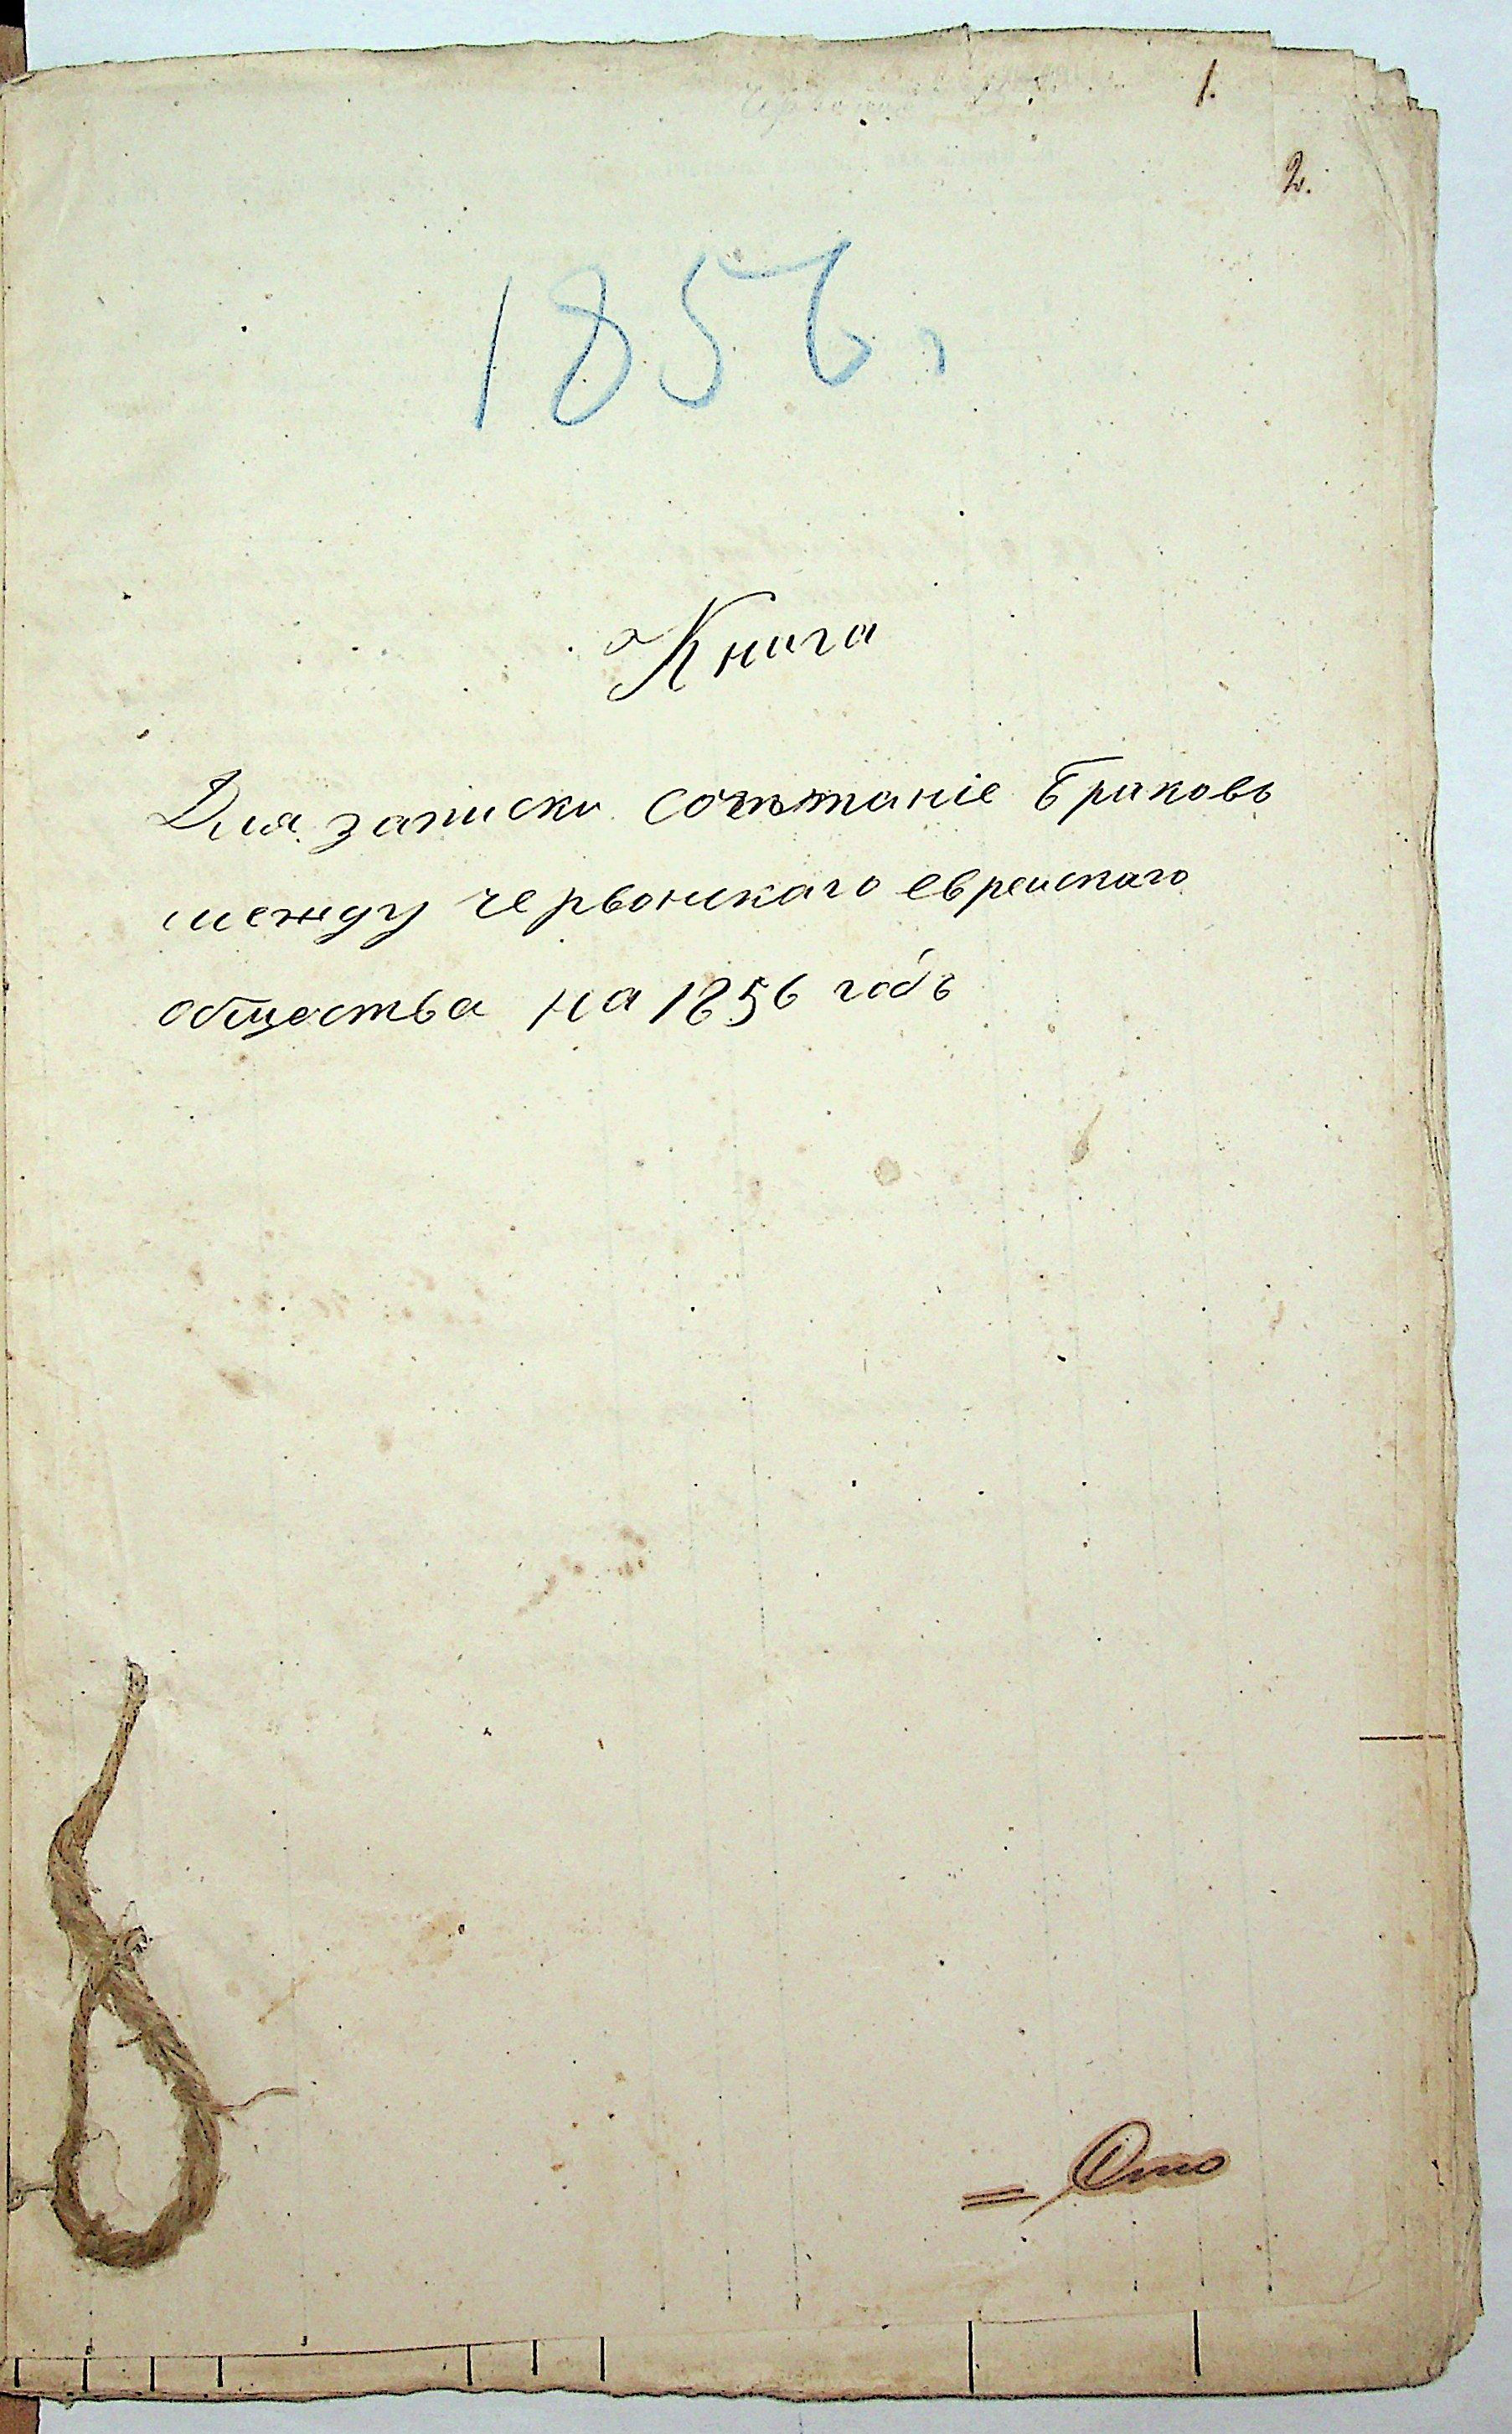 1.
2.
1856 г
Книга
Для записки сочѣтаніе браковъ
между червонскаго еврейскаго
общества на 1856 годъ